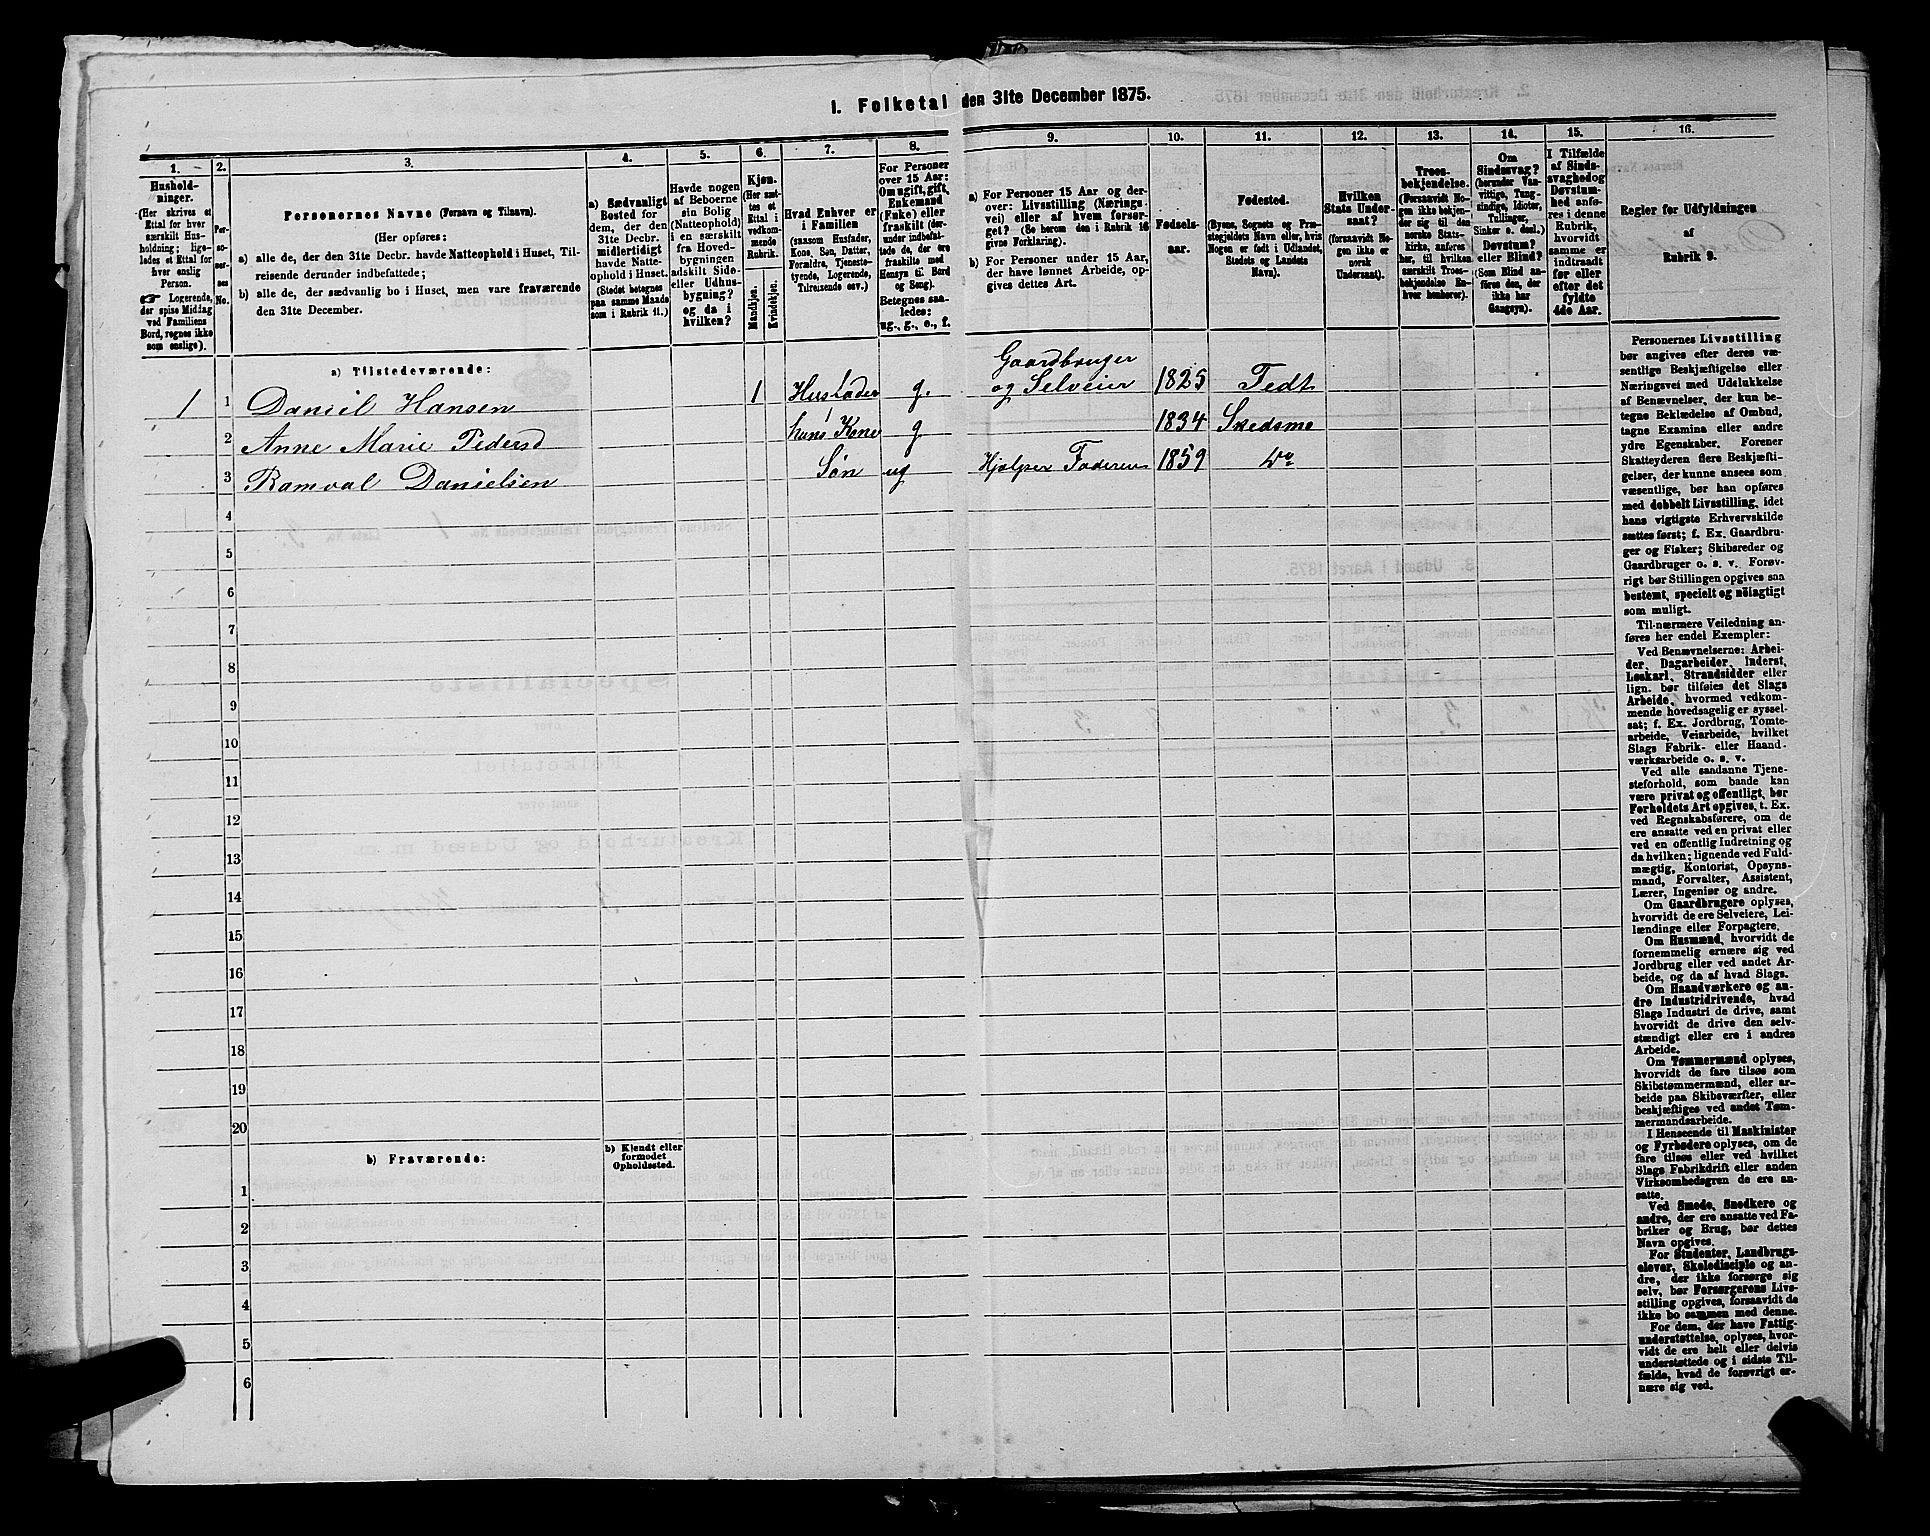 1. Folketal den 31te December 1875.
1.
2.
3.
4.
5.
6.
7.
8.
9.
10.
11.
12.
13.
14.
15.
16.
Hushold-
ninger.
(Her skrives et
Ettal for hver
særskilt Hus-
holdning; lige-
ledes et Ettal for
hver enslig
Person.
☞ Logerende,
der spise Middag
ved Familiens
Bord, regnes ikke
som enslige).
Per-
so-
ner-
nes
No.
Personernes Navne (Fornavn og Tilnavn).
(Her opføres:
a) alle de, der den 31te Decbr. havde Natteophold i Huset, Til-
reisende derunder indbefattede;
b) alle de, der sædvanlig bo i Huset, men vare fraværende
den 31te December.
a) Sædvanligt
Bosted for
dem, der den
31te Decbr.
midlertidigt
havde Natte-
ophold i Huset.
(Stedet betegnes
paa samme Maade
som i Rubrik 11.)
Havde nogen
af Beboerne
sin Bolig
(Natteophold)
i en særskilt
fra Hoved-
bygningen
adskilt Side-
eller Udhus-
bygning?
og da i
hvilken?
Kjøn.
(Her sæt-
tes et
Ettal i
vedkom-
mende
Rubrik.
Mandkjøn.
Kvindekjøn.
Hvad Enhver er
i Familien
(saasom Husfader,
Kone, Søn, Datter,
Forældre, Tjeneste-
tyende, Logerende,
Tilreisende osv.)
For Personer
over 15 Aar:
Om ugift, gift,
Enkemand
(Enke) eller
fraskilt (der-
under indbefat-
tede de, der ere
fraskilte med
Hensyn til Bord
og Seng).
Betegnes saa-
ledes:
ug., g., e., f.
a) For Personer 15 Aar og der-
over: Livsstilling (Nærings-
vei) eller af hvem forsør-
get? (Se herom den i Rubrik 16
givne Forklaring).
b) For Personer under 15 Aar,
der have lønnet Arbeide, op-
gives dettes Art.
Fødsels-
aar.
Fødested.
(Byens, Sognets og Præ-
stegjeldets Navn eller, hvis
Nogen er født i Udlandet,
Stedets og Landets
Navn).
Hvilken
Stats Under-
saat?
(forsaavidt No-
gen ikke er
norsk
Undersaat).
Troes-
bekjendelse.
(Forsaavidt No-
gen ikke bekjen-
der sig til den
norske Stats-
kirke, anføres
her, til hvilken
særskilt Troes-
bekjendelse En-
hver henhører).
Om
Sindssvag?
(herunder Van-
vittige, Tung-
sindige, Idioter,
Tullinger,
Sinker o. desl.)
Døvstum?
eller Blind?
(Som Blind an-
føres den, der
ikke har
Gangsyn).
I Tilfælde
af Sinds-
svaghed og
Døvstum-
hed anfø-
res i denne
Rubrik,
hvorvidt
samme er
indtraadt
før eller
efter det
fyldte
4de Aar.
Regler for Udfyldningen
af
Rubrik 9.
a) Tilstedeværende:
1 1 Daniel Hansen 1 Husfader g. Gaardbruger
og Selveier 1825 Fedt
2 Anne Marie Pedersd hans Kone g 1834 Skedsmo
3 Ramval Danielsen Søn ug Hjælper Faderen 1859 Do
4
5
6
7
8
9
10
11
12
13
14
15
16
17
18
19
20
b) Fraværende:
b) Kjendt eller
formodet
Opholdssted.
1
2
3
4
5
6
Personernes Livsstilling
bør angives efter deres væ-
sentlige Beskjæftigelse eller
Næringsvei med Udelukkelse
af Benævnelser, der kun be-
tegne Beklædelse af Ombud,
tagne Examina eller andre
ydre Egenskaber. Forener
Skatteyderen flere Beskjæfti-
gelser, der kunne ansees som
væsentlige, bør han opføres
med dobbelt Livsstilling, idet
hans vigtigste Erhvervskilde
sættes først; f. Ex. Gaardbru-
ger og Fisker; Skibsreder og
Gaardbruger o. s. v. Forøv-
rigt bør Stillingen opgives saa
bestemt, specielt og nöiagtigt
som muligt.
Til nærmere Veiledning an-
føres her endel Exempler:
Ved Benævnelserne: Arbei-
der, Dagarbeider, Inderst,
Løskarl, Strandsidder eller
lign. bør tilføies det Slags
Arbeide, hvormed vedkom-
mende hovedsagelig er syssel-
sat; f. Ex. Jordbrug, Tomte-
arbeide, Veiarbeide, hvilket
Slags Fabrik- eller Haand-
værksarbeide o. s. v.
Ved alle saadanne Tjene-
steforhold, som baade kan
være privat og offentligt, bør
Forholdets Art opgives, t. Ex.
ved Regnskabsførere, om de
ere ansatte ved en privat eller
ved en offentlig Indretning og
da hvilken; lignende ved Fuld-
mægtig, Kontorist, Opsyns-
mand, Forvalter, Assistent,
Lærer, Ingeniør og andre.
Om Gaardbrugere oplyses,
hvorvidt de ere Selveiere, Lei-
lændinge eller Forpagtere.
Om Husmænd, hvorvidt de
fornemmelig ernære sig ved
Jordbrug eller ved andet Ar-
beide, og da af hvad Slags.
Om Haandværkere og an-
dre Industridrivende, hvad
Slags Industri de drive, samt
hvorvidt de drive den selv-
stændigt eller ere i andres
Arbeide.
Om Tømmermænd oplyses,
hvorvidt de fare tilsøs som
Skibstømmermænd, eller ar-
beide paa Skibsværfter, eller
beskjæftiges ved andet Tøm-
mermandsarbeide.
I Henseende til Maskinister
og Fyrbødere oplyses, om de
fare tilsøs eller ved hvilket
Slags Fabrikdrift eller anden
Virksomhedsgren de ere an-
satte.
Ved Smede, Snedkere og
andre, der ere ansatte ved Fa-
briker og Brug, bør dettes
Navn opgives.
For Studenter, Landbrugs-
elever, Skoledisciple og an-
dre, der ikke forsørge sig
selv, bør Forsørgerens Livs-
stilling opgives, forsaavidt de
ikke bo sammen med denne.
For dem, der have Fattig-
understøttelse, oplyses, hvor-
vidt de ere helt eller delvis
understøttede og i sidste Til-
fælde, hvad de forøvrigt er-
nære sig ved.